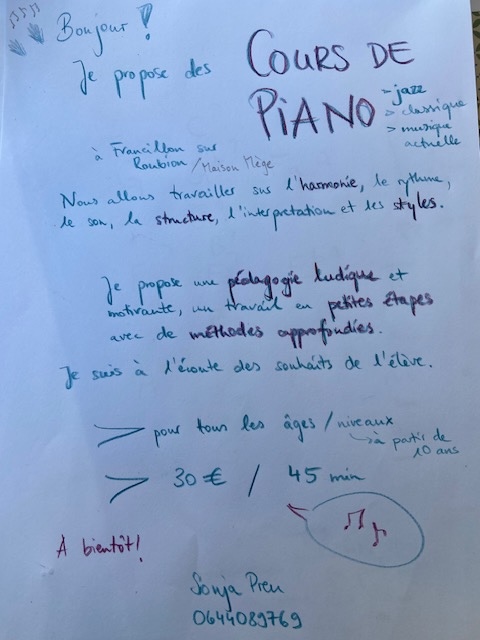 Bonjour !
Je propose des
COURS DE
PIANO
> jazz
> classique
> musique
actuelle
à Francillon sur
Roubion / Maison Mège
Nous allons travailler sur l'harmonie, le rythme,
le son, la structure, l'interpretation et les styles.
Je propose une pédagogie ludique et
motivante, un travail en petites étapes
avec de méthodes approfondies.
Je suis à l'écoute des souhaits de l'élève.
> pour tous les âges / niveaux
à partir de
10 ans
> 30 € / 45 min
À bientôt!
Sonja
0644089769